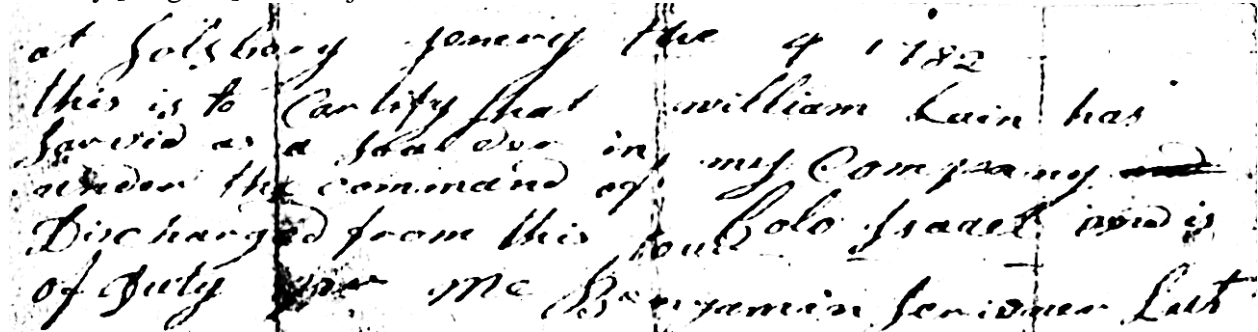 at Solsbary jenerey the 4 1782
this is to Cartify that william Lain has
sarvid as a soalder in my Company
under the command of Colo Isaac and is
Discharged from this tour
of Duty per Me Benjamin Scrivner Lut